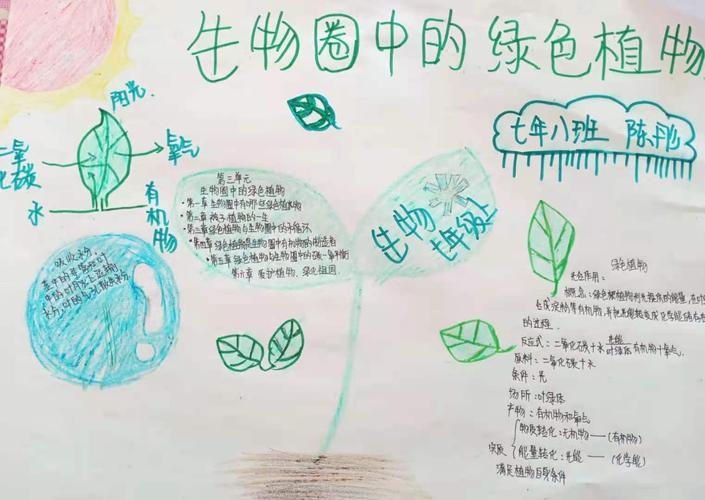 生物圈中的绿色植物
七年八班 陈
阳光
二氧化碳
氧气
水
有机物
第三单元
生物圈中的绿色植物
·第一章 生物圈中有哪些绿色植物
·第二章 被子植物的一生
·第三章 绿色植物与生物圈中的水循环
·第四章 绿色植物是生物圈中有机物的制造者
·第五章 绿色植物与生物圈中的碳-氧平衡
第六章 爱护植物，绿化祖国
生物
七年级上
绿色植物
光合作用：
概念：绿色植物利用光提供的能量，在叶
合成淀粉等有机物，并把光能转变成化学能储存在
的过程
反应式：二氧化碳＋水 光能 叶绿体 有机物＋氧气
原料：二氧化碳＋水
条件：光
场所：叶绿体
产物：有机物和氧气
实质
物质转化：无机物——（有机物）
能量转化：光能——（化学能）
满足植物自身条件